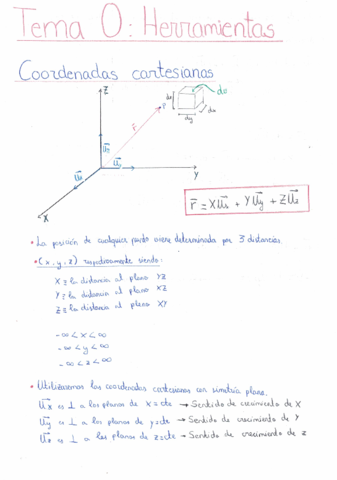 Tema 0: Herramientas
Coordenadas cartesianas
Z
P
dv
dz
dx
dy
r⃗
u⃗z
u⃗y
u⃗x
Y
X
r⃗ = X u⃗x + Y u⃗y + Z u⃗z
• La posición de cualquier punto viene determinada por 3 distancias.
• (x, y, z) respectivamente siendo:
X ≡ la distancia al plano YZ
Y ≡ la distancia al plano XZ
Z ≡ la distancia al plano XY
-∞ < x < ∞
-∞ < y < ∞
-∞ < z < ∞
• Utilizaremos las coordenadas cartesianas con simetría plana.
u⃗x es ⊥ a los planos de x = cte → Sentido de crecimiento de X
u⃗y es ⊥ a los planos de y = cte → Sentido de crecimiento de Y
u⃗z es ⊥ a los planos de z = cte → Sentido de crecimiento de Z